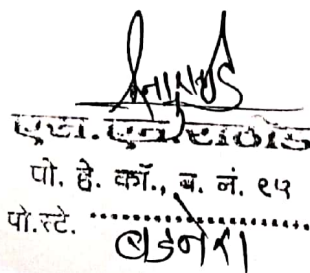 एस. एन. राठोड
पो. हे. कॉ., ब. नं. ९५
पो.स्टे. ..................
बडनेरा